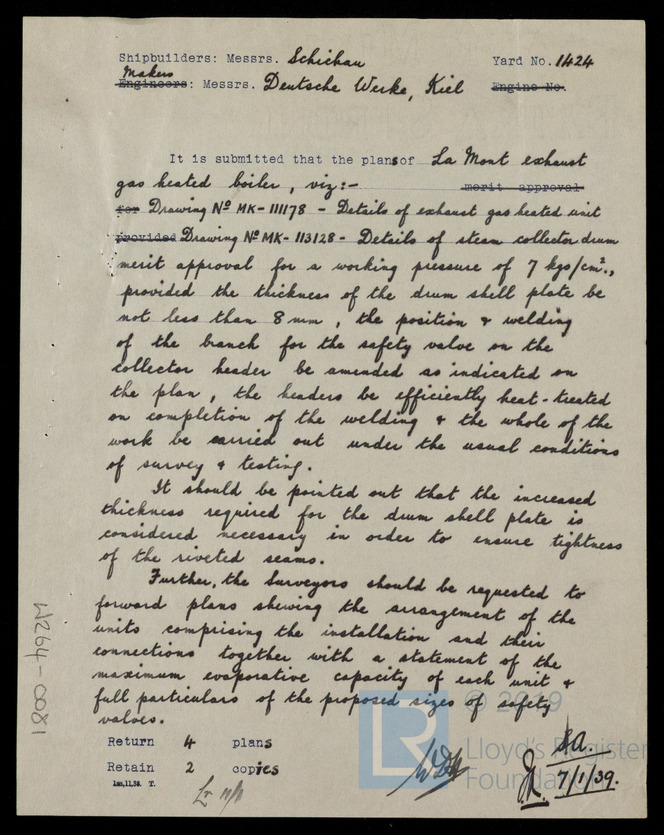 Shipbuilders: Messrs. Schichau Yard No. 1424
Makers
Engineers: Messrs. Deutsche Werke, Kiel Engine No.
It is submitted that the plans of La Mont exhaust
gas heated boiler, viz:- merit approval
for Drawing Nº MK-111178 - Details of exhaust gas heated unit
provided Drawing Nº MK-113128 - Details of steam collector drum
merit approval for a working pressure of 7 kgs/cm².,
provided the thickness of the drum shell plate be
not less than 8 mm, the position & welding
of the branch for the safety valve on the
collector header be amended as indicated on
the plan, the headers be efficiently heat-treated
on completion of the welding & the whole of the
work be carried out under the usual conditions
of survey & testing.
It should be pointed out that the increased
thickness required for the drum shell plate is
considered necessary in order to ensure tightness
of the riveted seams.
Further, the Surveyors should be requested to
forward plans shewing the arrangement of the
units comprising the installation and their
connections together with a statement of the
maximum evaporative capacity of each unit &
full particulars of the proposed sizes of safety
valves.
Return 4 plans
Retain 2 copies
1m,11,38. T.
7/1/39.
W264-0081
© 2019
LR
Lloyd's Register
Foundation